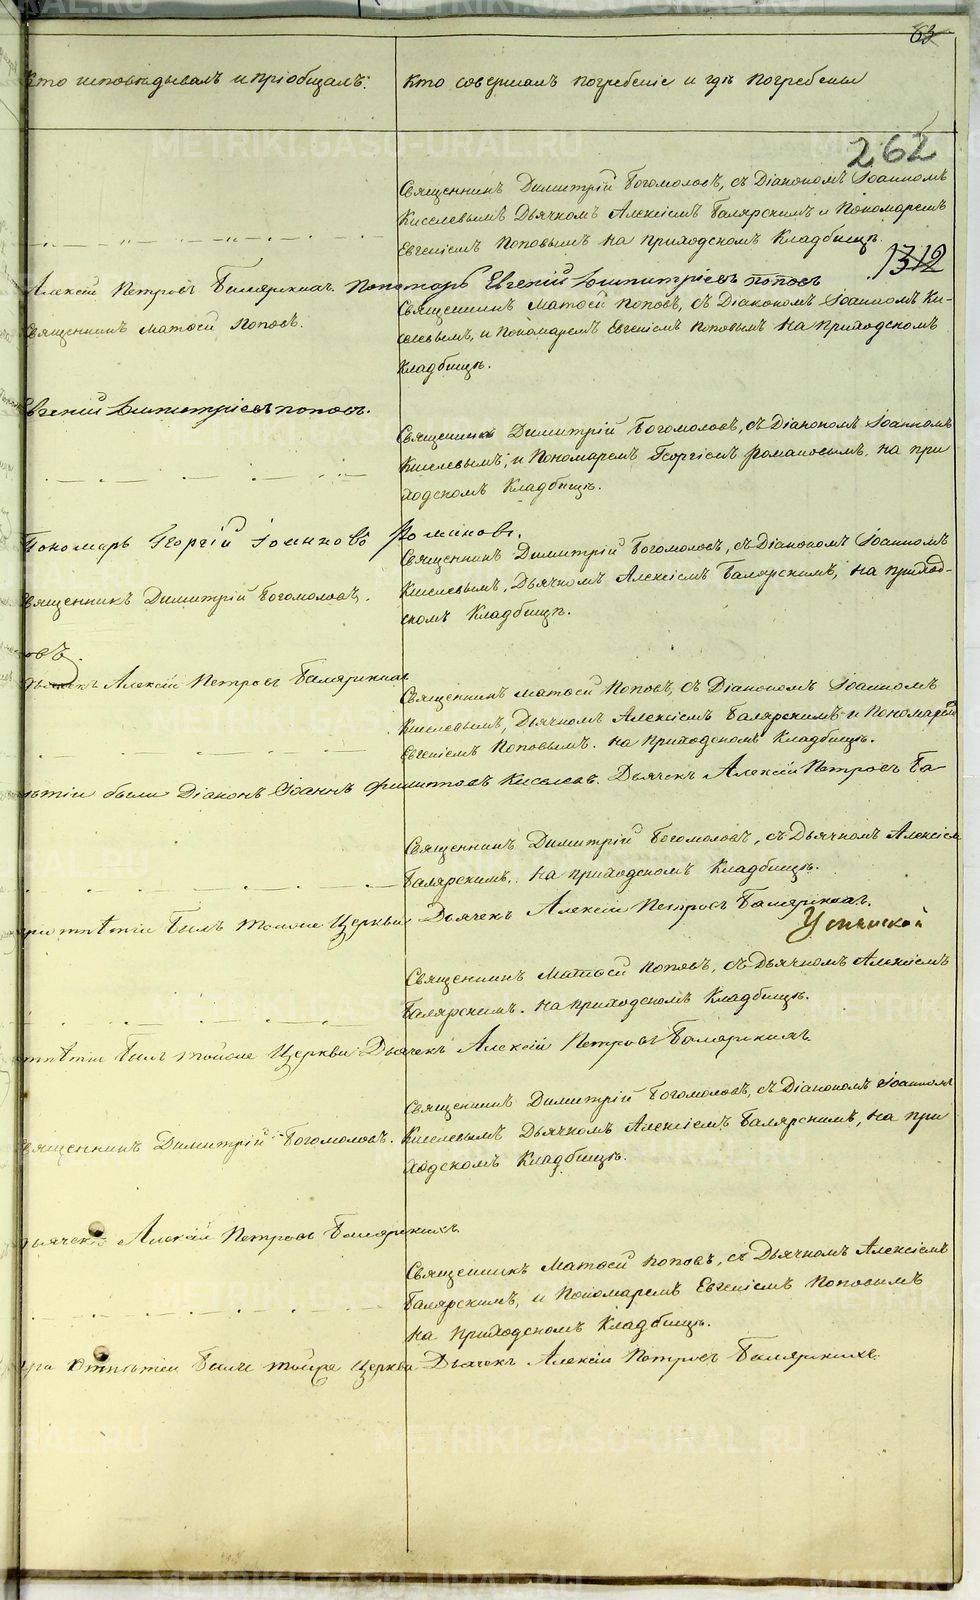 63
Кто исповѣдывалъ и пріобщалъ.
Кто совершалъ погребеніе и гдѣ погребены
262
Священникъ Димитрій Богомоловъ, съ Діакономъ Іоанномъ
Киселевымъ Дьячкомъ Алексіемъ Балярскимъ и Пономаремъ
Евгеніемъ Поповымъ на приходскомъ Кладбищѣ.
1312
Алексій Петровъ Балярскихъ Пономарь Евгеній Димитріевъ Поповъ
Священникъ Матѳей Поповъ.
Священникъ Матѳей Поповъ, съ Діакономъ Іоанномъ Ки-
селевымъ, и Пономаремъ Евгеніемъ Поповымъ на приходскомъ
Кладбищѣ.
Евгеній Димитріевъ Поповъ.
Священникъ Димитрій Богомоловъ, съ Діакономъ Іоанномъ
Киселевымъ, и Пономаремъ Георгіемъ Романовымъ. на при
ходскомъ Кладбищѣ.
Пономарь Георгій Іоанновъ Романовъ.
Священникъ Димитрій Богомоловъ, съ Діакономъ Іоанномъ
Киселевымъ, Дьячкомъ Алексіемъ Балярскимъ, на приход-
скомъ Кладбищѣ.
Священникъ Димитрій Богомоловъ.
овъ.
Дьячекъ Алексій Петровъ Балярскихъ
Священникъ Матѳей Поповъ, съ Діакономъ Іоанномъ
Киселевымъ, Дьячкомъ Алексіемъ Балярскимъ и Пономаремъ
Евгеніемъ Поповымъ. на приходскомъ Кладбищѣ.
были Діаконъ Іоаннъ Филиповъ Киселевъ. Дьячекъ Алексій Петровъ Ба
Священникъ Димитрій Богомоловъ, съ Дьячкомъ Алексіемъ
Балярскимъ. на приходскомъ Кладбищѣ.
при отпѣтіи былъ тойже Церкви Дьячекъ Алексій Петровъ Балярскихъ.
Успенской
Священникъ Матѳей Поповъ, съ Дьячкомъ Алексіемъ
Балярскимъ. на приходскомъ Кладбищѣ.
отпѣтіи былъ тойже Церкви Дьячекъ Алексій Петровъ Балярскихъ.
Священникъ Димитрій Богомоловъ.
Священникъ Димитрій Богомоловъ, съ Діакономъ Іоанномъ
Киселевымъ Дьячкомъ Алексіемъ Балярскимъ, на при
ходскомъ Кладбищѣ.
Дьячекъ Алексій Петровъ Балярскихъ.
Священникъ Матѳей Поповъ, съ Дьячкомъ Алексіемъ
Балярскимъ, и Пономаремъ Евгеніемъ Поповымъ
на приходскомъ Кладбищѣ.
при отпѣтіи былъ тойже Церкви Дьячекъ Алексій Петровъ Балярскихъ.
METRIKI.GASO-URAL.RU